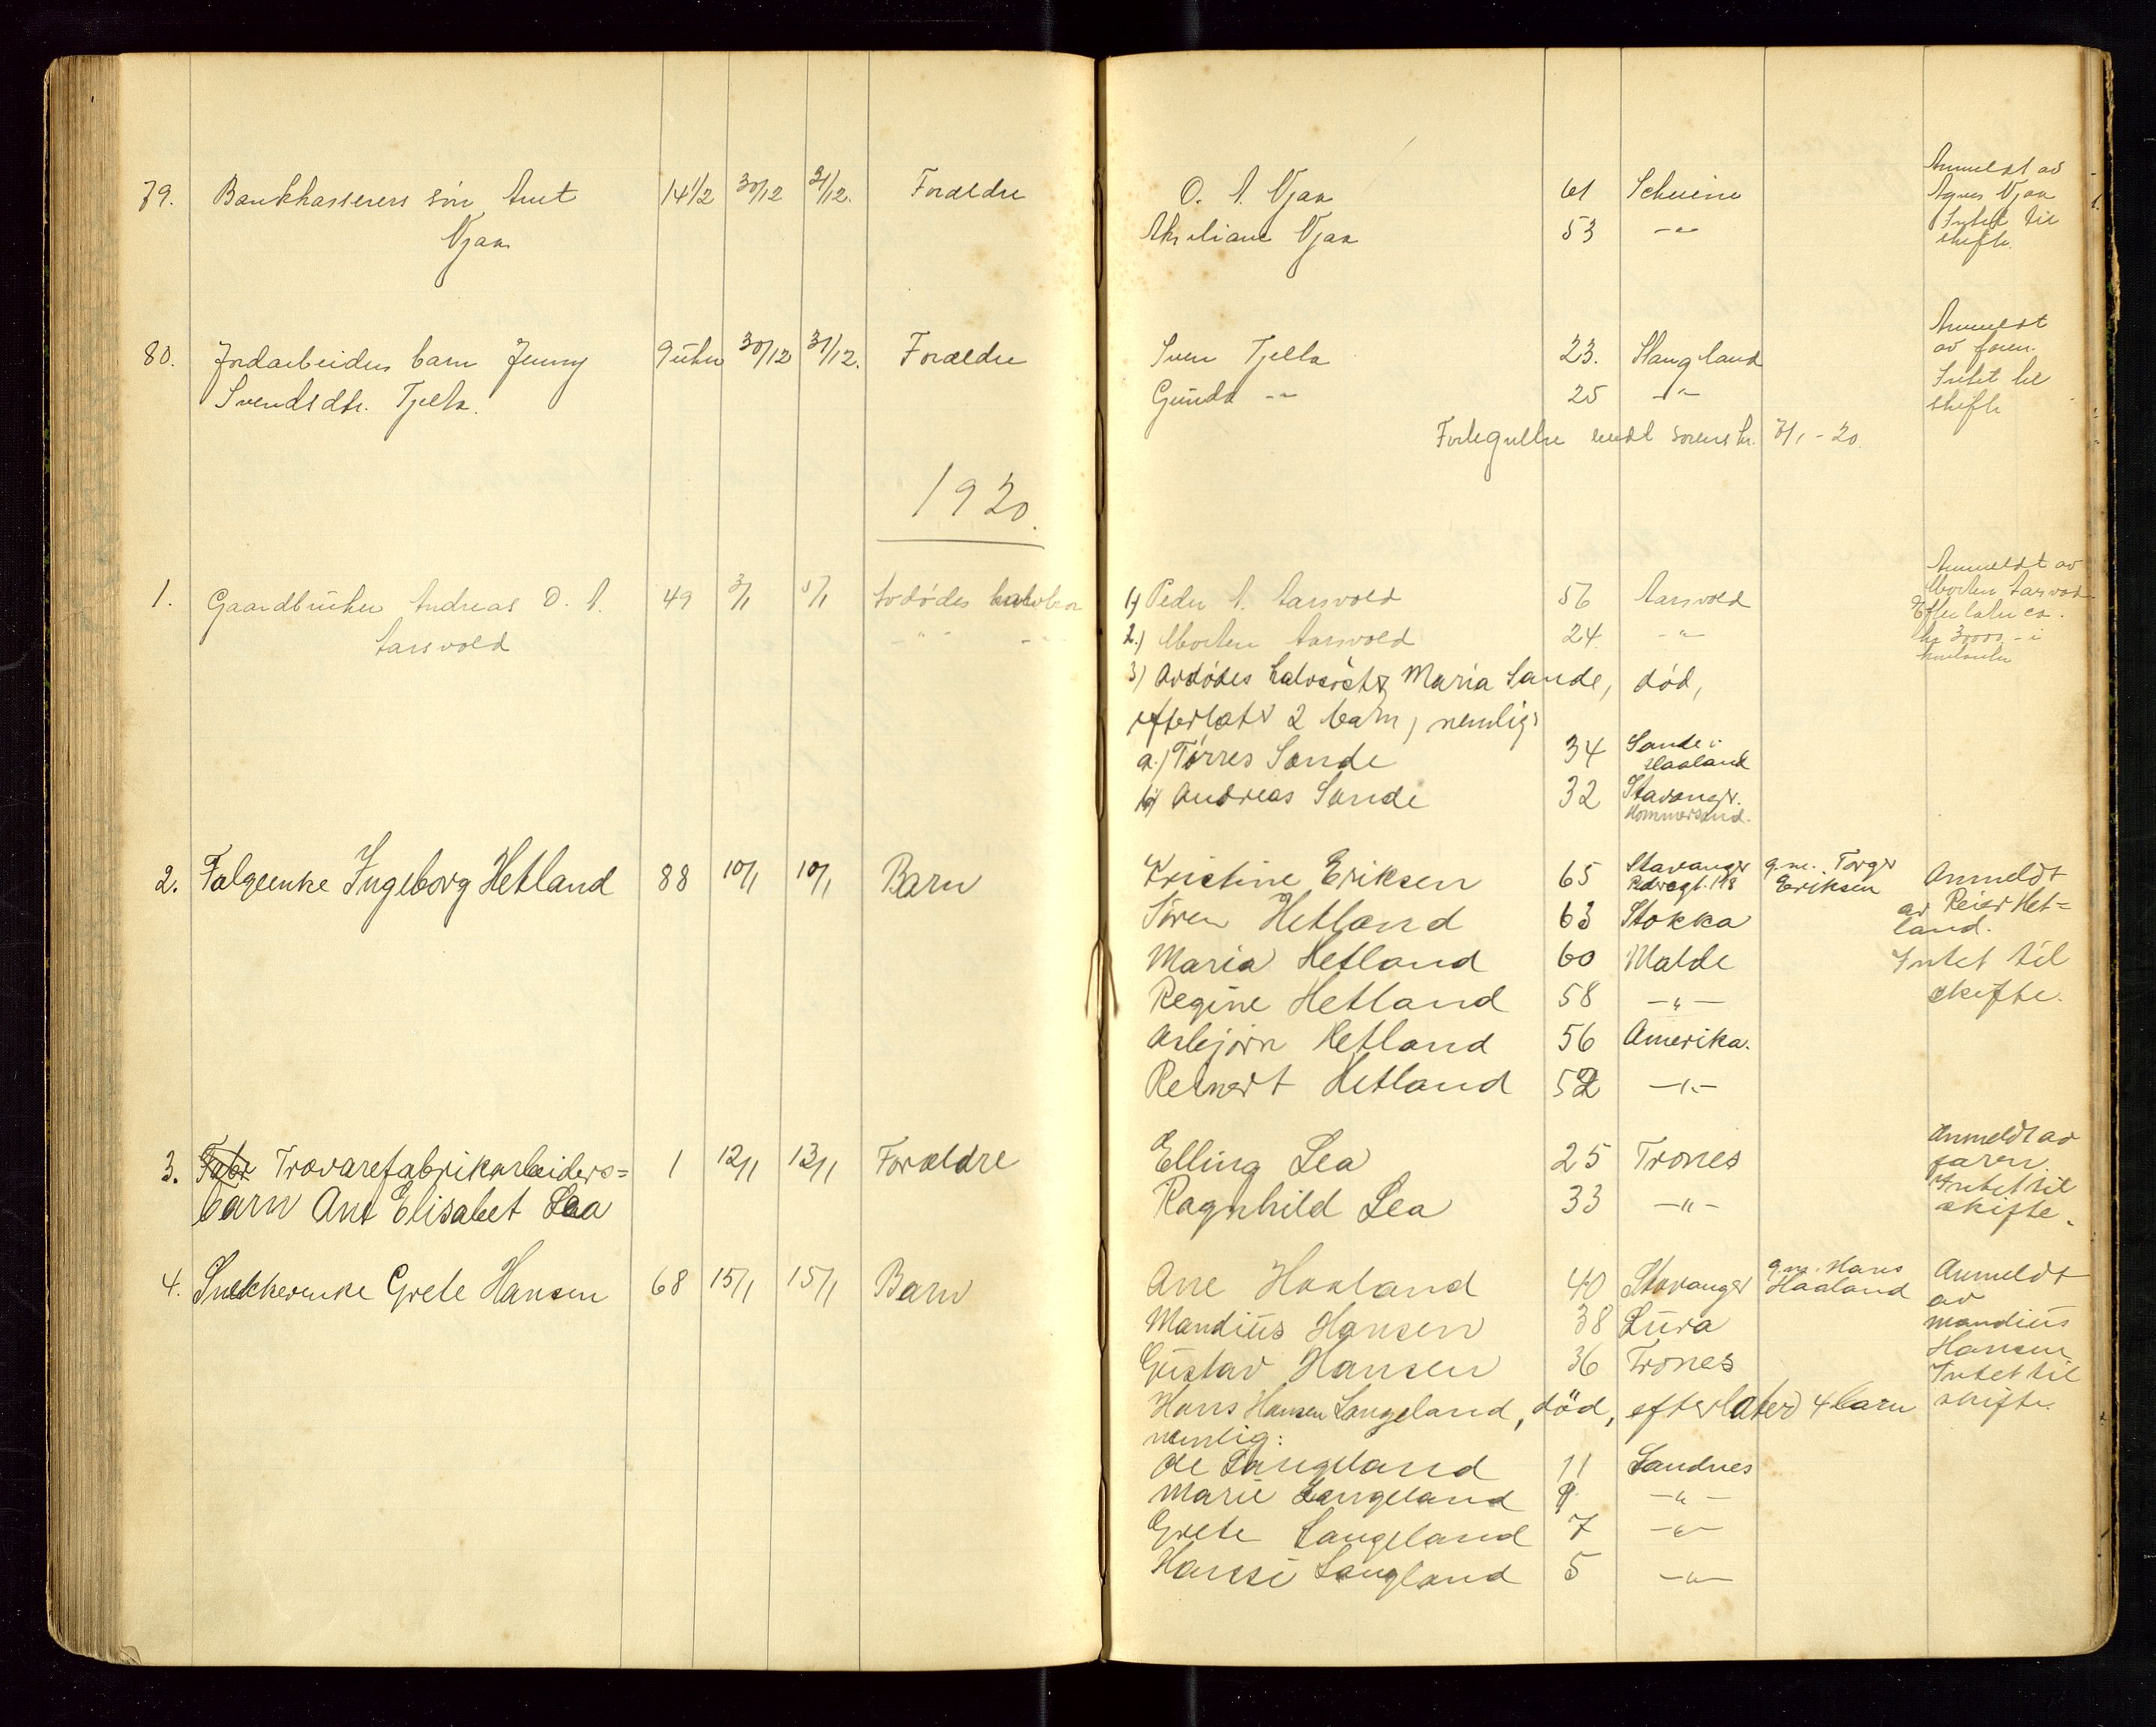 79. Bankkasserers søn Arnt 14 1/2 30/12 31/12. Forældre O. A. Vjaa 61 Scheine Anmeldt av
Vjaa Akseliane Vjaa 53 -"- Agnes Vjaa
Intet til
skifte.
80. Jordarbeiders barn Jenny 9 uker 30/12 31/12. Forældre Sven Tjelta 23. Haugland Anmeldt
Svendsdtr. Tjelta. Gunda -"- 25 -"- av faren.
Intet til
skifte
sendt sorenskr. 7/1 - 20.
1920.
1. Gaardbruker Andreas O. A. 49 3/1 5/1 Avdødes halvbror 1) Peder A. Aarsvold 56 Aarsvold Anmeldt av
Aarsvold -"- 2.) Morten Aarsvold 24. -"- Morten Aarsvold
Efterlater ca.
kr 30000 - i
3) Avdødes halvsøster Maria Sande, død,
efterlater 2 barn, nemlig:
a.) Tørres Sande 34 Sande i
Haaland
b) Andreas Sande 32 Stavanger.
Hommersand.
2. Følgeenke Ingeborg Hetland 88 10/1 10/1 Barn Kristine Eriksen 65 Stavanger g.m. Torger Eriksen Anmeldt
av Reier Het=
Søren Hetland 63 Stokka land.
Maria Hetland 60 Malde Intet til
Regine Hetland 58 -"- skifte.
Asbjørn Hetland 56 Amerika.
Reinert Hetland 52 -"-
3. Fabr Trævarefabrikarbeiders= 1 12/1 13/1 Forældre Elling Lea 25 Trones Anmeldt av
barn Ane Elisabet Lea Ragnhild Lea 33 -"- faren.
Intet til
skifte.
4. Snekkerenke Grete Hansen 68 15/1 15/1 Barn Ane Haaland 40 Stavanger g.m. Hans Haaland Anmeldt
av
Mandius Hansen 38 Lura Mandius
Gustav Hansen 36 Trones Hansen
Intet til
Hans Hansen Langeland, død, efterlater 4 barn skifte.
nemlig:
Ole Langeland 11 Sandnes
Marie Langeland 9 -"-
Grete Langeland 7 -"-
Hansi Langland 5 -"-